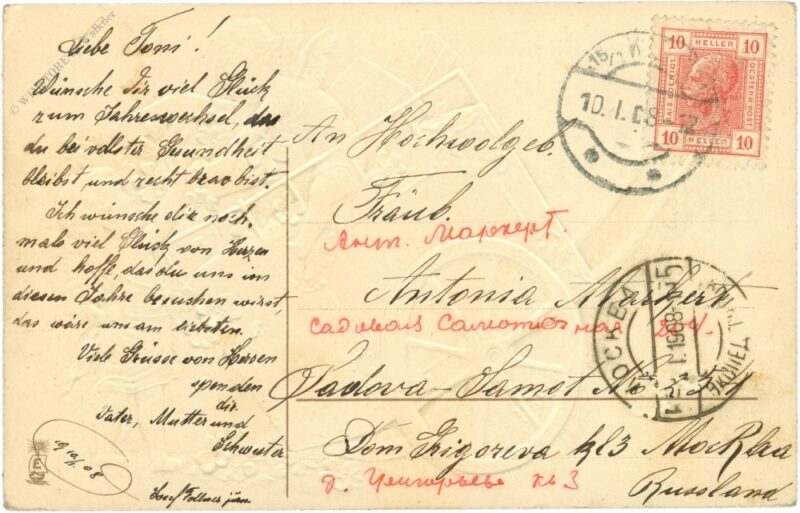 Liebe Toni!
Wünsche Dir viel Glück
zum Jahreswechsel, das
du bei vollster Gesundheit
bleibst und recht brav bist.
Ich wünsche dir noch-
mals viel Glück von Herzen
und hoffe, das du uns im
diesen Jahre besuchen wirst,
das wäre uns am liebsten.
Viele Grüsse von Herzen
spenden
dir
Vater, Mutter und
Schwester
19 10/1. 08
Josef
An Hochwolgeb.
Fräul.
Ант. Маркерт.
Antonia Markert
Садовая Самот
Sadova-Samot
Dom Grigoreva kl 3 Moskka
д. Григорьева кв 3
Russland
10 HELLER 10
KAIS. KÖNIGL. OESTERR. POST
10 HELLER 10
10. I. 08
МОСКВА
1.1908